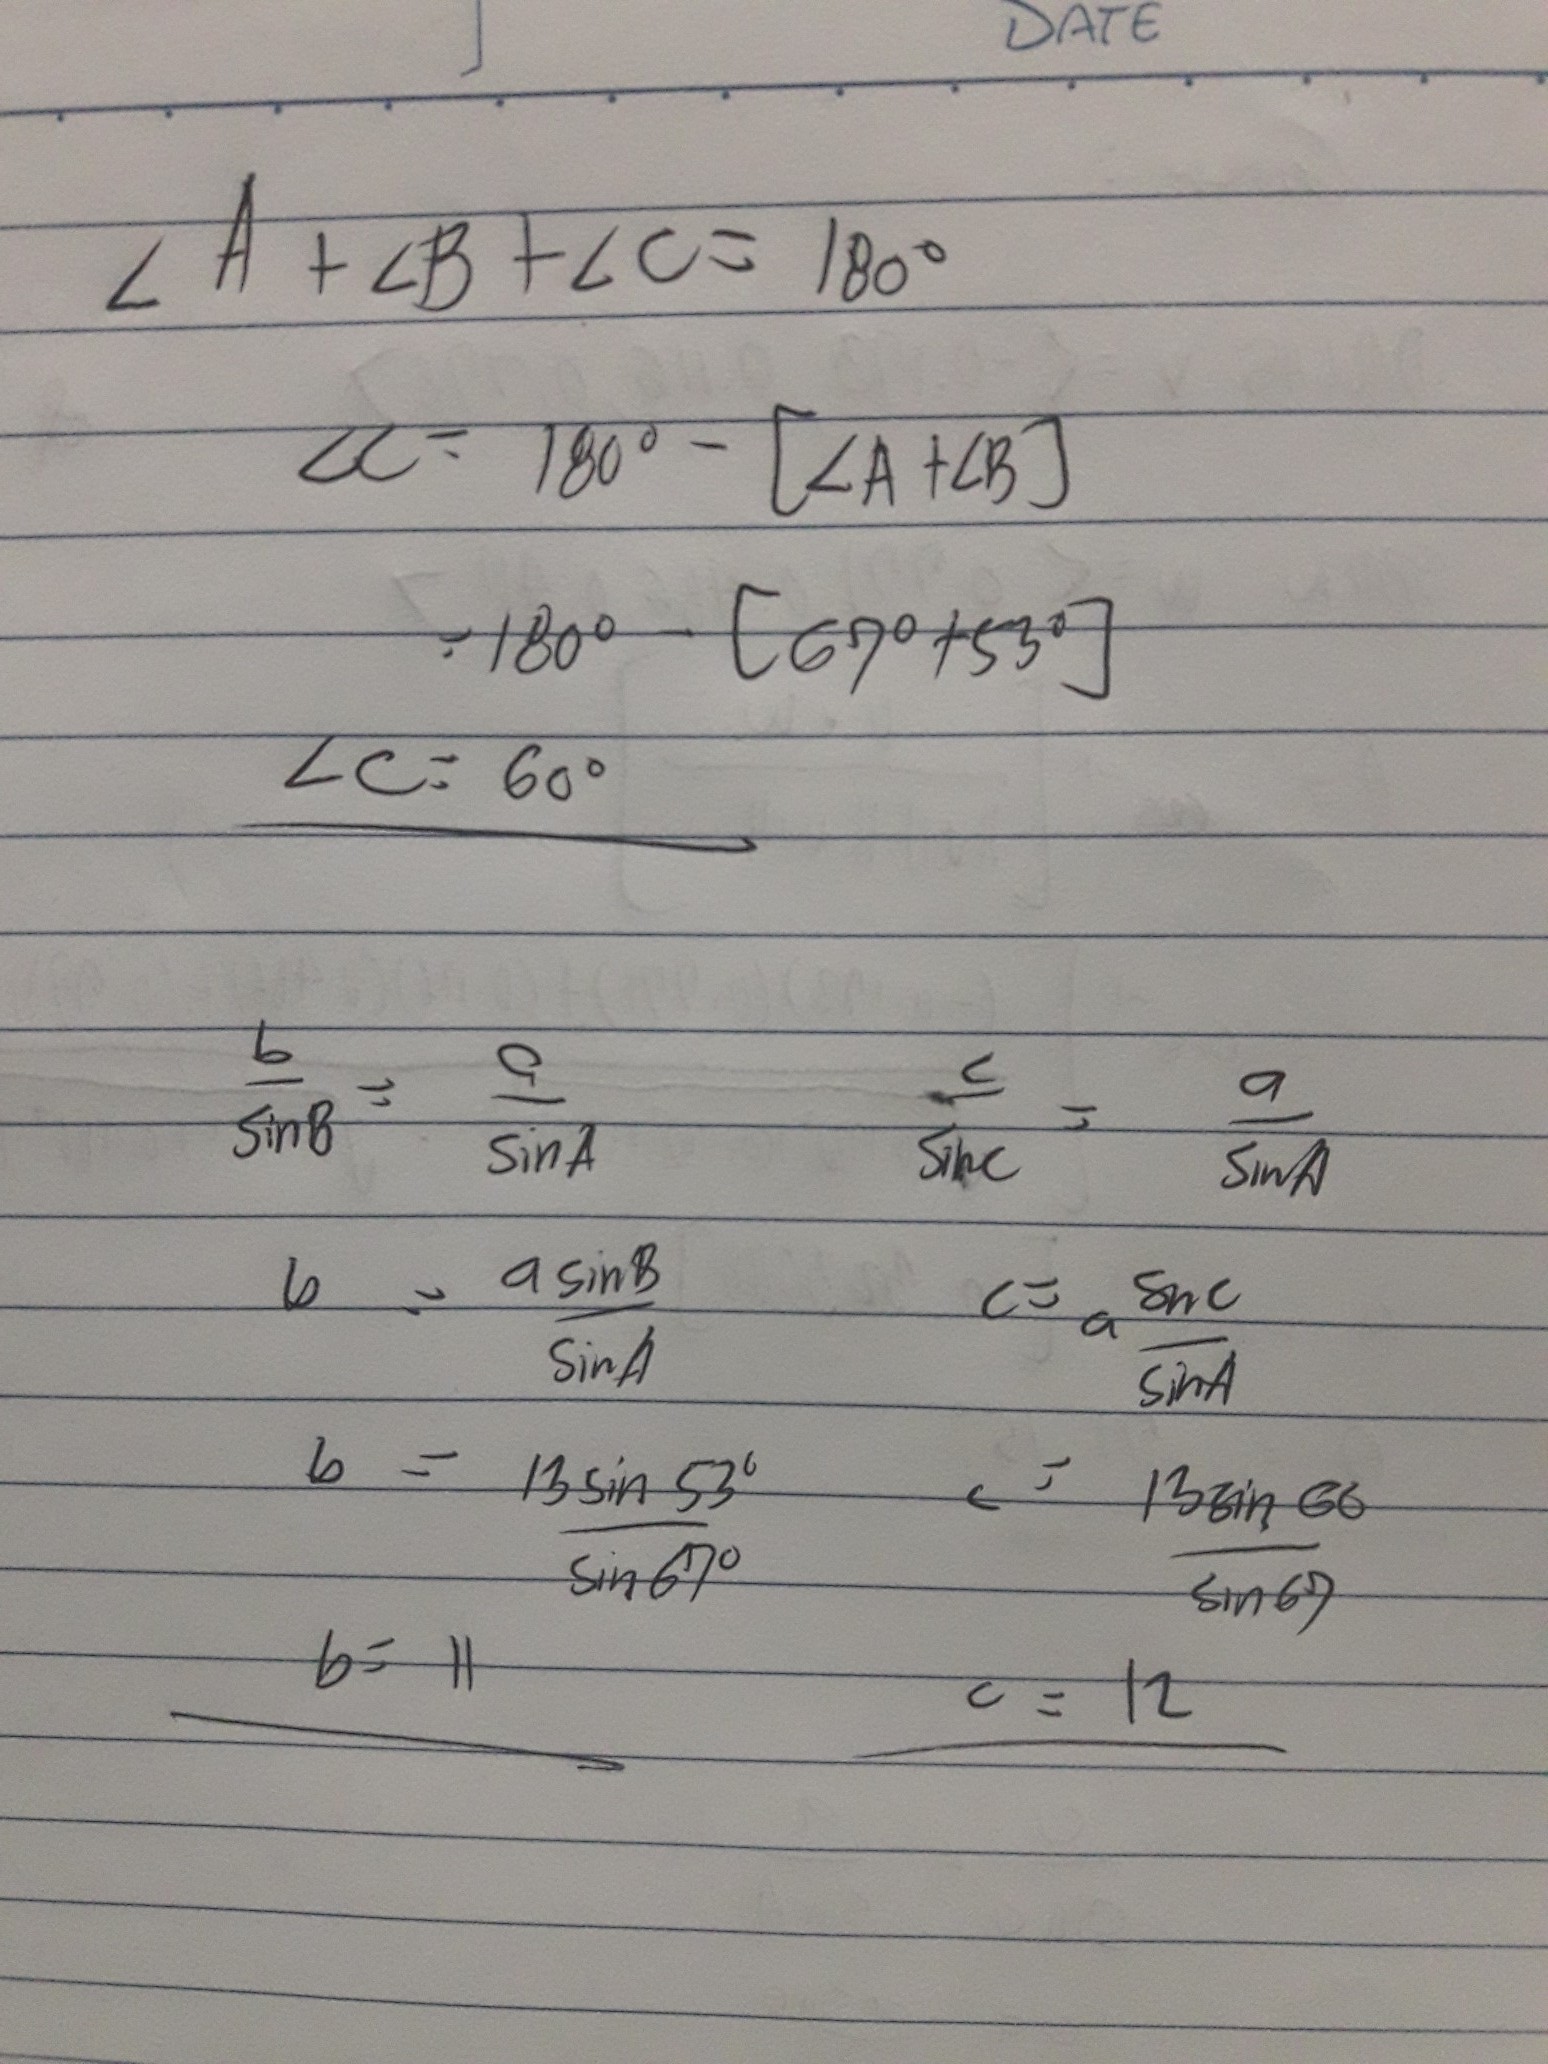 DATE
∠A + ∠B + ∠C = 180°
∠C = 180° - [∠A + ∠B]
= 180° - [67° + 53°]
∠C = 60°
b/sinB = a/sinA
b = a sinB/sinA
b = 13 sin 53°/sin 67°
b = 11
c/sinC = a/sinA
c = a sinC/sinA
c = 13 sin 60/sin 67
c = 12